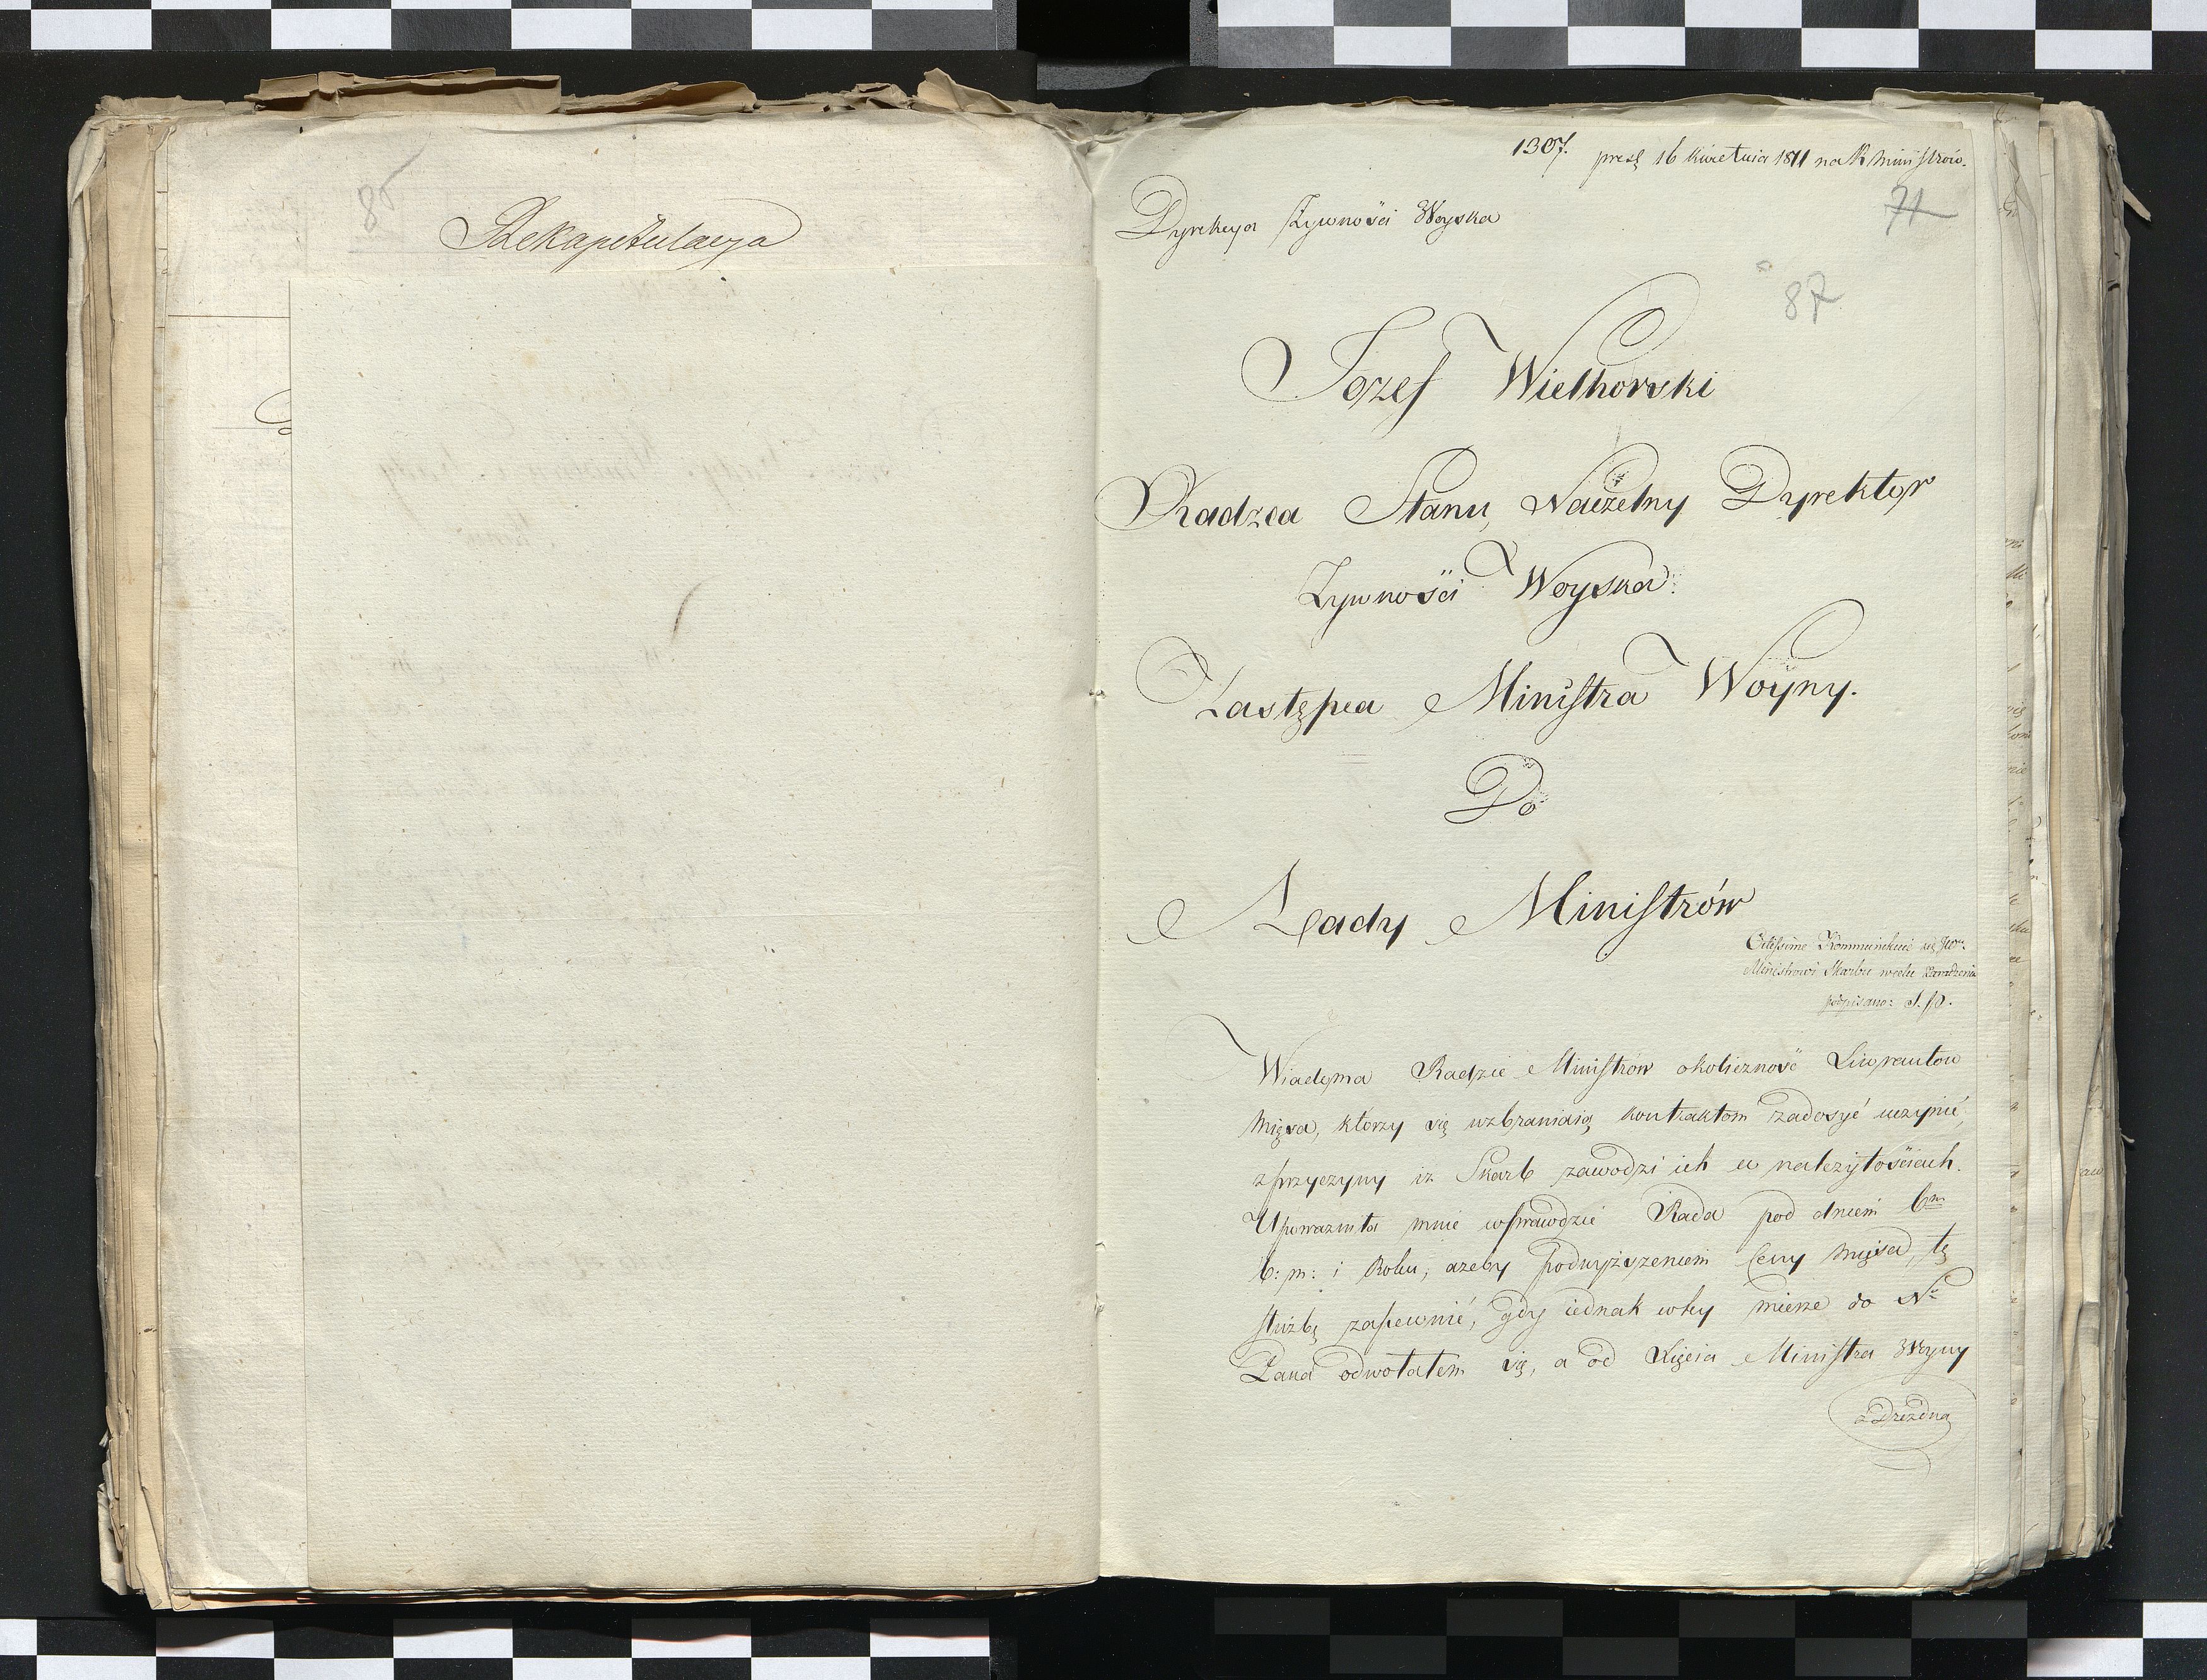 85
Rekapitulacya
1307. prez 16 kwietnia 1811 na R Ministrów.
71
Dyrekcya Żywności Woyska
87
Jozef Wielhorski
Radzca Stanu, Naczelny Dyrektor
Żywności Woyska.
Zastępca Ministra Woyny.
Do
Rady Ministrów
Citissime Kommunikuie się
Ministrowi Skarbu wcelu zaradzenia
podpisano: S. P.
Wiadoma Radzie Ministrów okoliczność Liwrantow
Mięsa, ktorzy się wzbraniaią kontraktom zadosyć uczynić,
zprzyczyny iz Skarb zawodzi ich w nalezytościach.
Upowazniła mnie wprawdzie Rada pod dniem 6m
b: m: i Roku, azeby podwyzszeniem Ceny Mięsa, tę
służbę zapewnić, gdy iednak wtey mierze do Nº
Pana odwołałem się, a od Xięcia Ministra Woyny
z Drezdna